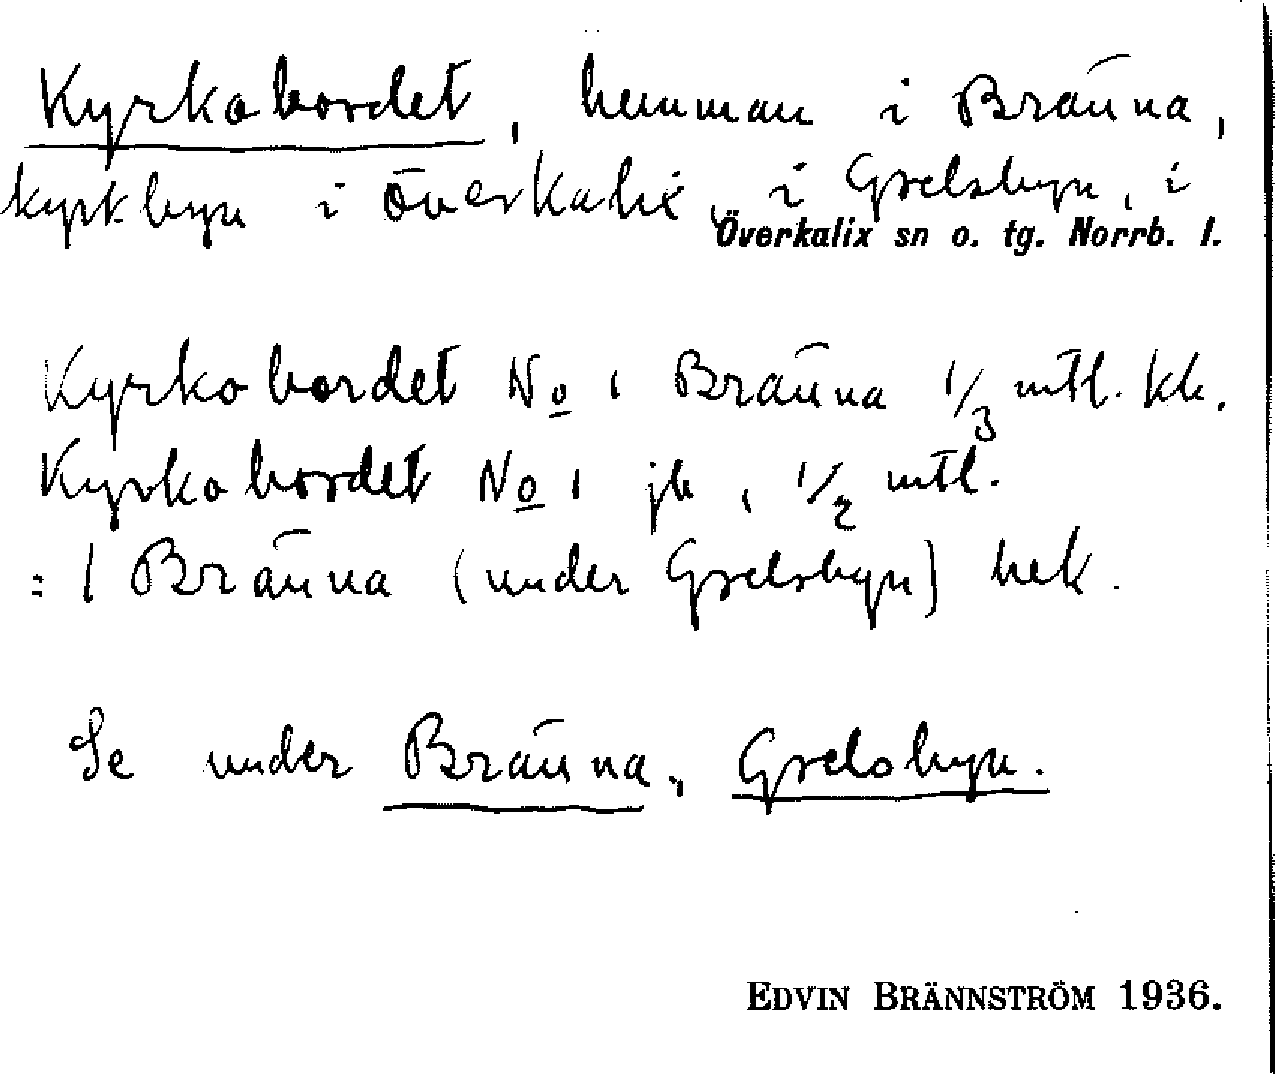 Kyrkobordet, hemman i Bränna,
kyrkbyn i Överkalix, i Grelsbyn, i
Överkalix sn o. tg. Norrb. l.
Kyrkobordet No 1 Bränna 1/3 mtl. kk.
Kyrkobordet No 1 jb, 1/2 mtl.
= 1 Bränna (under Grelsbyn) hek.
Se under Bränna, Grelsbyn.
EDVIN BRÄNNSTRÖM 1936.